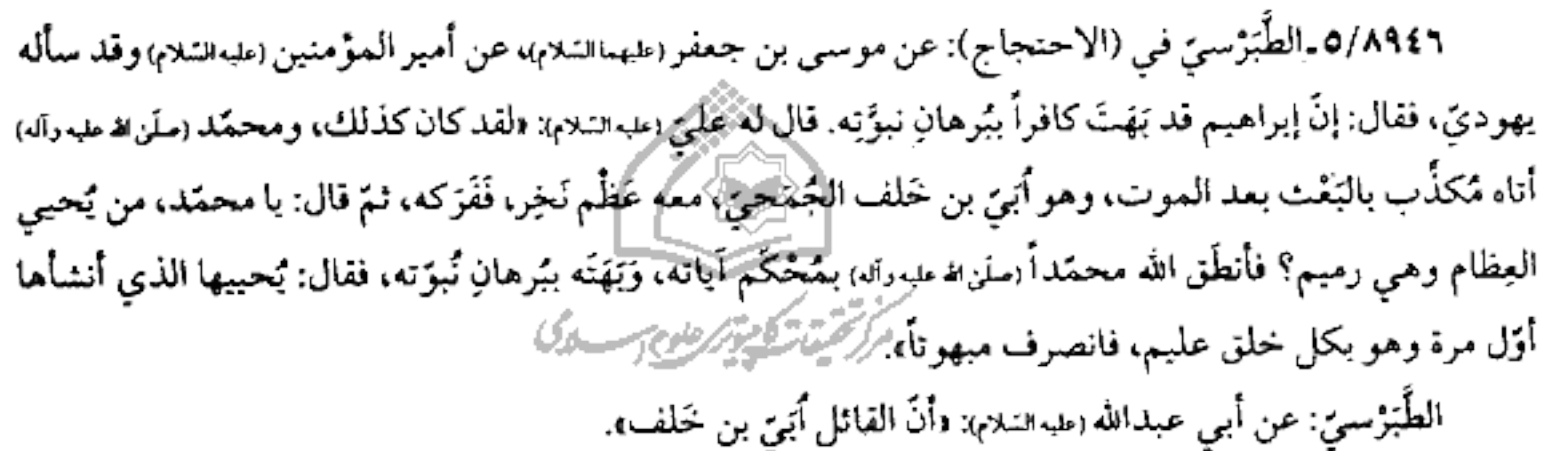 ٥/٨٩٤٦ ـ الطَّبَرْسيّ في (الاحتجاج): عن موسى بن جعفر (عليهما السّلام)، عن أمير المؤمنين (عليه السّلام) وقد سأله
يهوديّ، فقال: إنّ إبراهيم قد بَهَتَ كافراً ببُرهانِ نبوَّتِه. قال له عليّ (عليه السّلام): «لقد كان كذلك، ومحمّد (صلّى الله عليه وآله)
أتاه مُكذِّب بالبَعْث بعد الموت، وهو أُبَيّ بن خَلف الجُمَحيّ، معه عَظْم نَخِر، فَفَرَكه، ثمّ قال: يا محمّد، من يُحيي
العِظام وهي رميم؟ فأنطَق الله محمّداً (صلّى الله عليه وآله) بمُحْكَم آياته، وَبَهَتَه ببُرهانِ نُبوّته، فقال: يُحييها الذي أنشأها
أوّل مرة وهو بكل خلق عليم، فانصرف مبهوتاً».
مركز تحقيقات كامپيوترى علوم اسلامى
الطَّبَرْسيّ: عن أبي عبدالله (عليه السّلام): «أنّ القائل أُبَيّ بن خَلف».